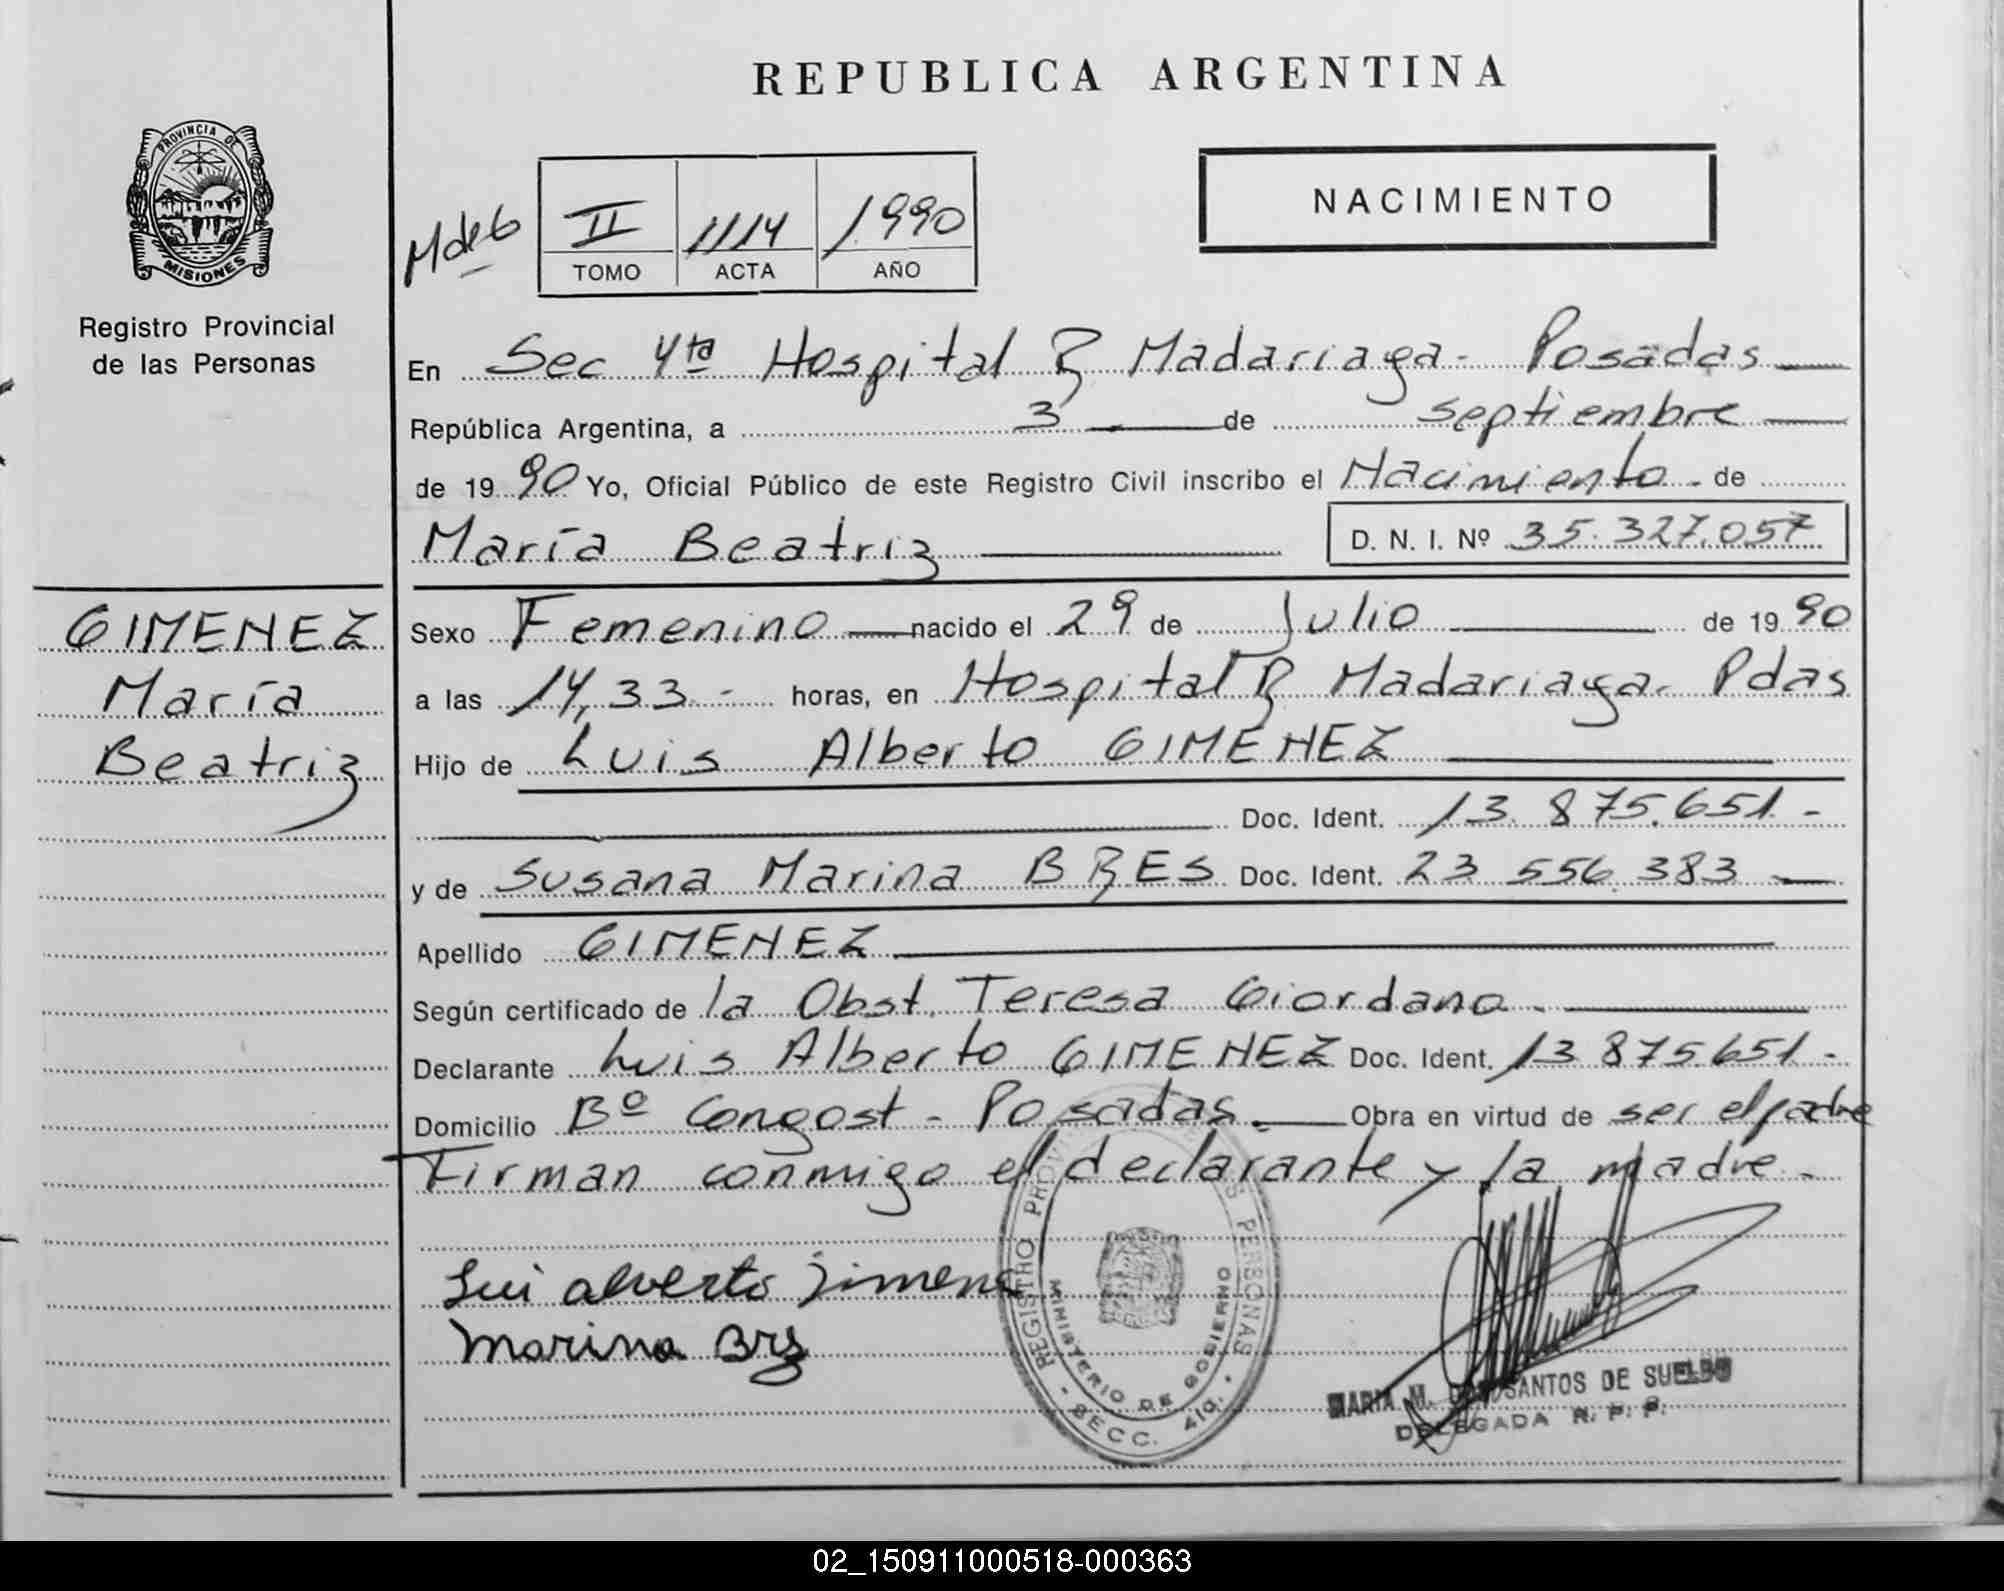 REPUBLICA ARGENTINA
PROVINCIA DE
MISIONES
Registro Provincial
de las Personas
NACIMIENTO
II 1114 1990
TOMO ACTA AÑO
En Sec 4ta Hospital R Madariaga - Posadas
República Argentina, a 3 de septiembre
de 1990 Yo, Oficial Público de este Registro Civil inscribo el Nacimiento - de
María Beatriz D. N. I. Nº 35.327.057
GIMENEZ
María
Beatriz
Sexo Femenino nacido el 29 de Julio de 1990
a las 14,33 - horas, en Hospital R Madariaga. Pdas
Hijo de Luis Alberto GIMENEZ
Doc. Ident. 13.875.651 -
y de Susana Marina BRES Doc. Ident. 23 556.383
Apellido GIMENEZ
Según certificado de la Obst. Teresa Giordano -
Declarante Luis Alberto GIMENEZ Doc. Ident. 13 875.651 -
Domicilio Bº Congost - Posadas. Obra en virtud de ser el padre
Firman conmigo el declarante y la madre -
Lui alverto Jimene
Marina Bres
REGISTRO PROVINCIAL DE LAS PERSONAS
MINISTERIO DE GOBIERNO
SECC. 4ta.
MARIA M. SANTOS DE
DELEGADA R. P. P.
02_150911000518-000363